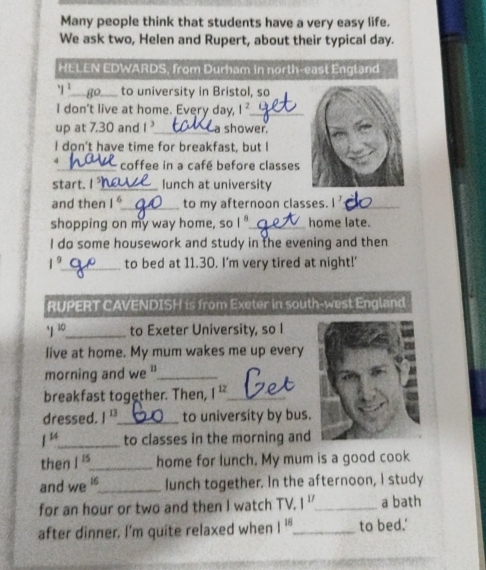 Many people think that students have a very easy life.
We ask two, Helen and Rupert, about their typical day.
HELEN EDWARDS, from Durham in north-east England
'I ¹ go to university in Bristol, so
I don't live at home. Every day, I ² get
up at 7.30 and I ³ take a shower.
I don't have time for breakfast, but I
⁴ have coffee in a café before classes
start. I ⁵ have lunch at university
and then I ⁶ go to my afternoon classes. I ⁷ do
shopping on my way home, so I ⁸ get home late.
I do some housework and study in the evening and then
I ⁹ go to bed at 11.30. I'm very tired at night!'
RUPERT CAVENDISH is from Exeter in south-west England
'I ¹⁰________ to Exeter University, so I
live at home. My mum wakes me up every
morning and we ¹¹________
breakfast together. Then, I ¹² Get
dressed. I ¹³ Go to university by bus.
I ¹⁴________ to classes in the morning and
then I ¹⁵________ home for lunch. My mum is a good cook
and we ¹⁶________ lunch together. In the afternoon, I study
for an hour or two and then I watch TV. I ¹⁷________ a bath
after dinner. I'm quite relaxed when I ¹⁸________ to bed.'